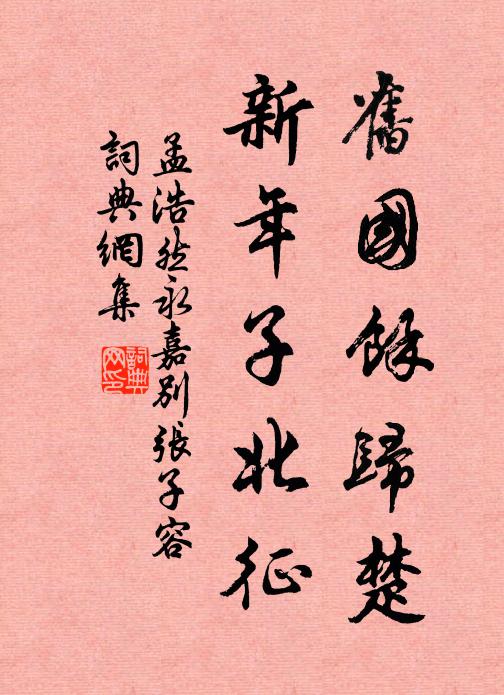 舊國餘歸楚
新年子北征
孟浩然永嘉別張子容
詞典網集
詞典網印